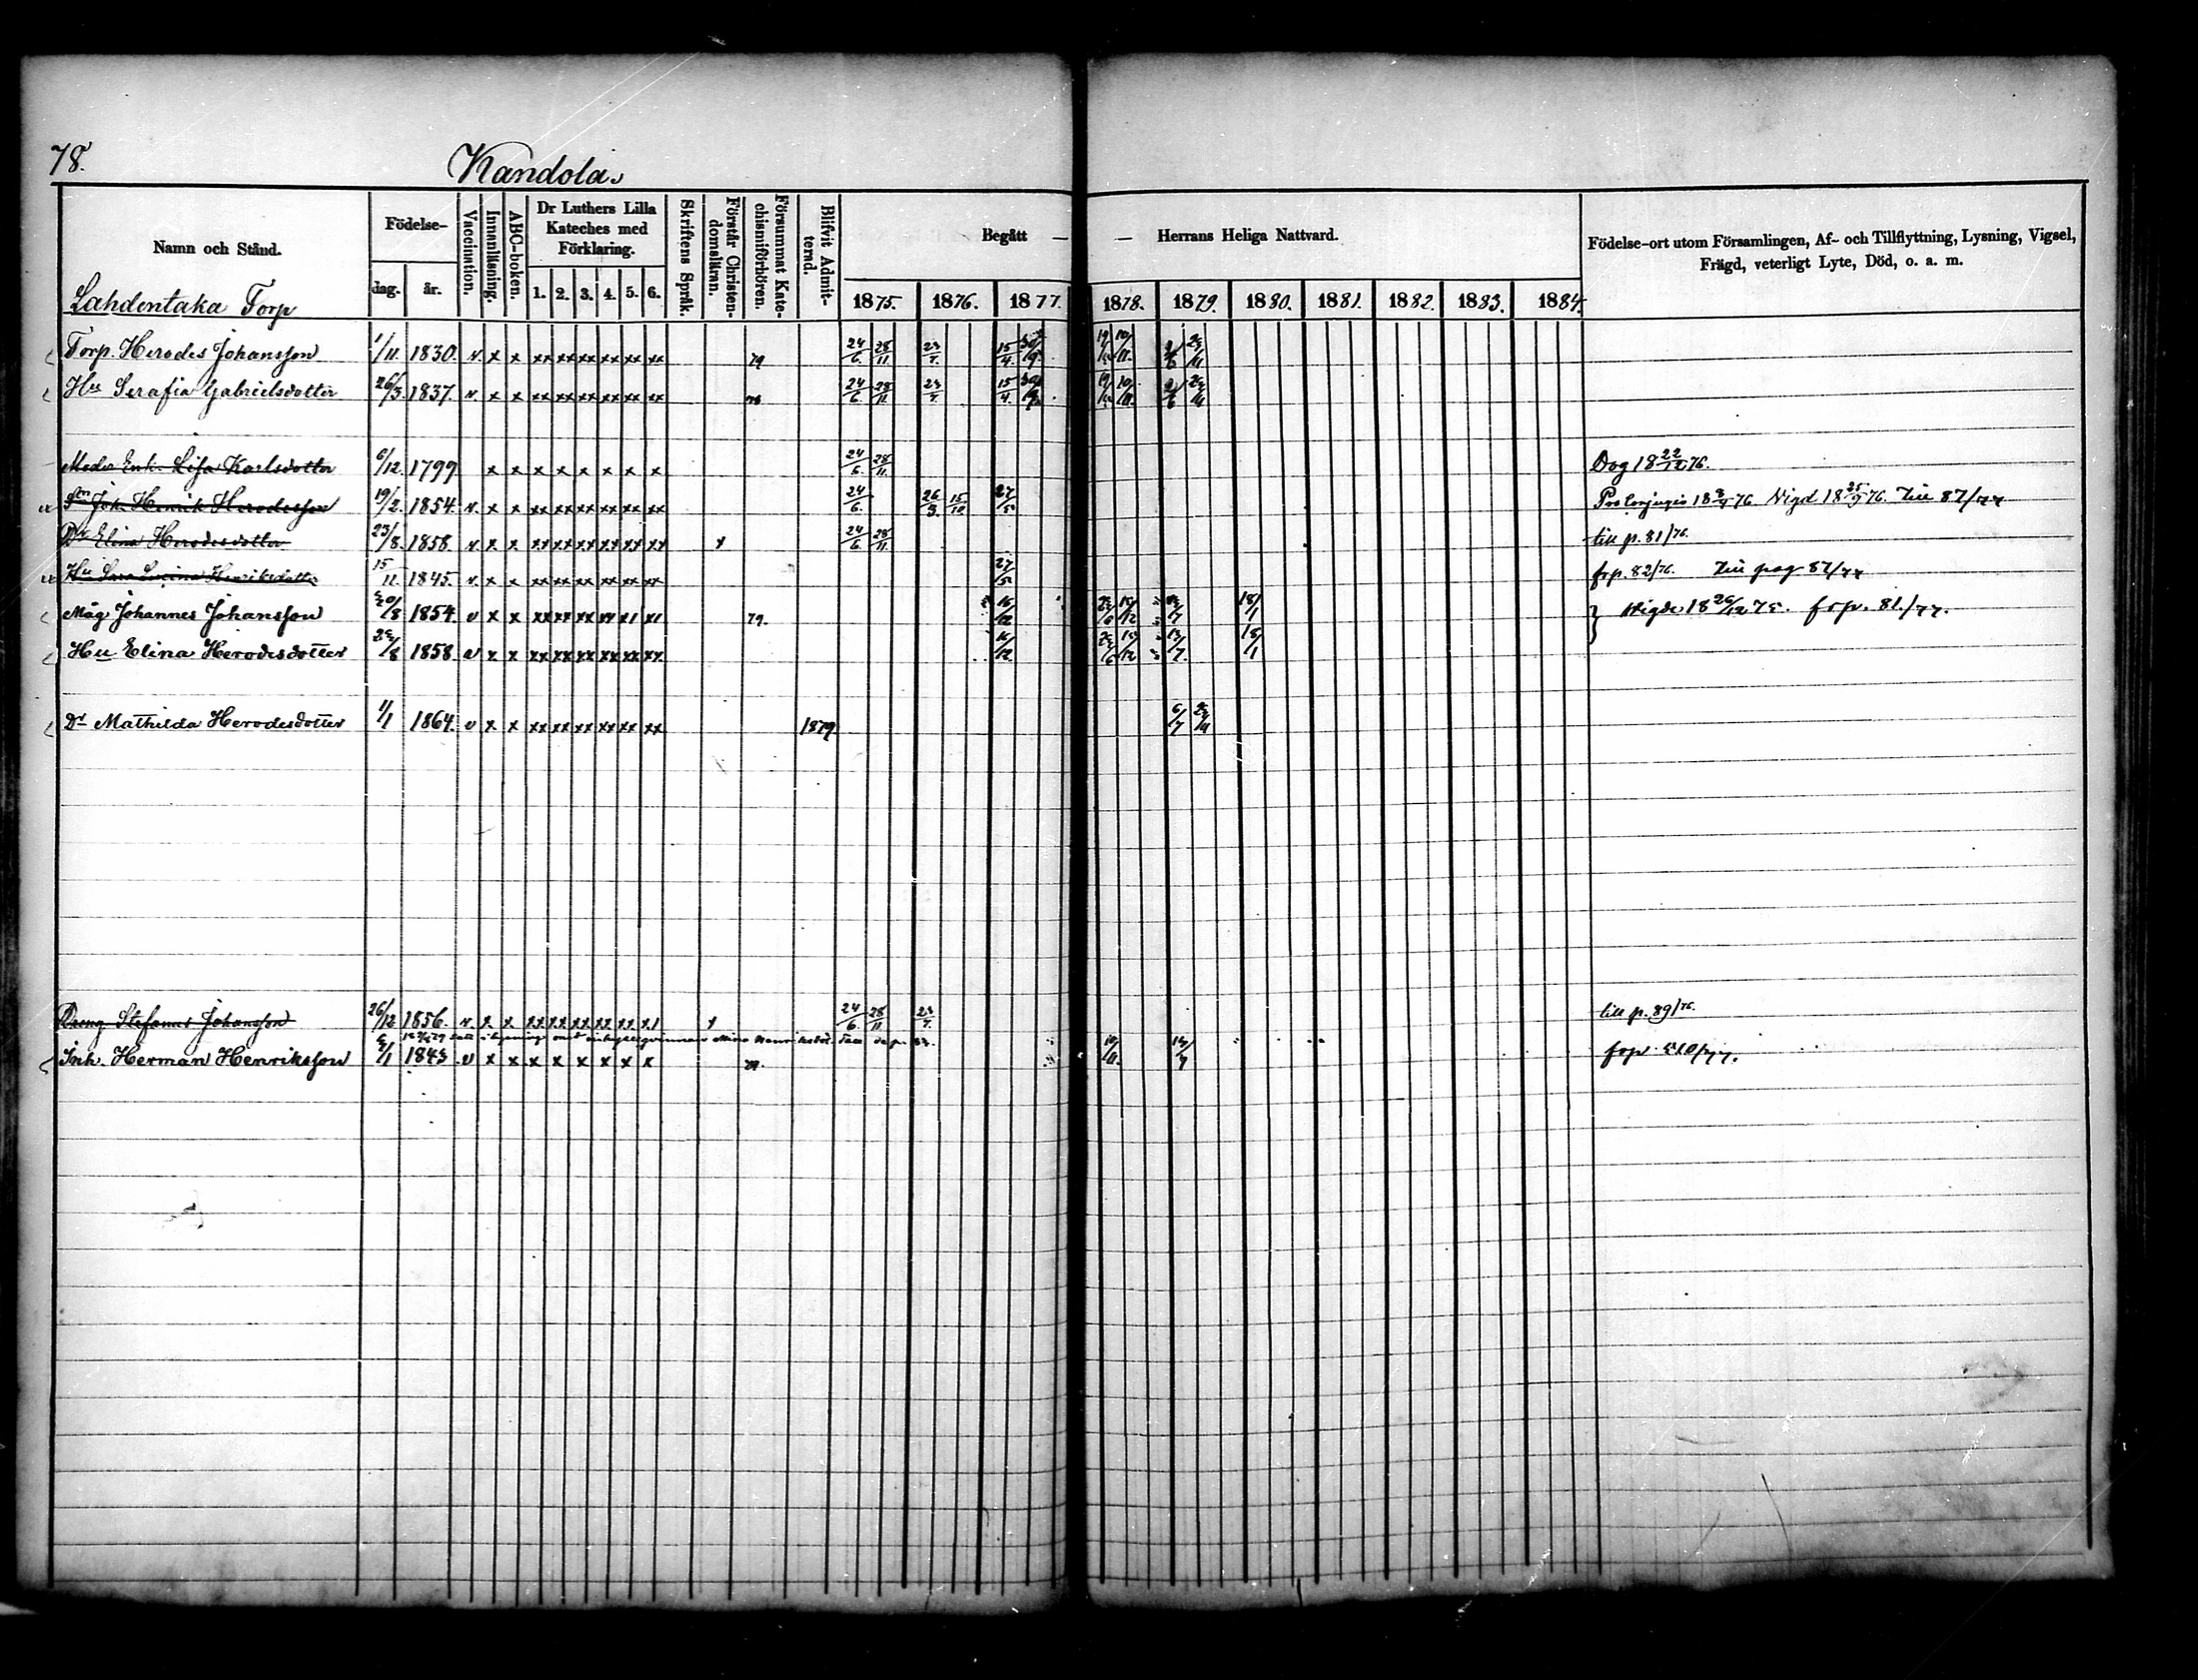 78.
Kandola.
Namn och Stånd.
Födelse-
dag. år.
Vaccination.
Innanläsning.
ABC-boken.
Dr Luthers Lilla Kateches med Förklaring.
1. 2. 3. 4. 5. 6.
Skriftens Språk.
Förstår Christendomsläran.
Försummat Katechismiförhören.
Blifvit Admitterad.
Begått — — Herrans Heliga Nattvard.
1875. 1876. 1877. 1878. 1879. 1880. 1881. 1882. 1883. 1884.
Födelse-ort utom Församlingen, Af- och Tillflyttning, Lysning, Vigsel,
Frägd, veterligt Lyte, Död, o. a. m.
Lahdentaka Torp
Torp. Herodes Johansson 1/11. 1830. v. x x xx xx xx xx xx xx 79 24/6. 28/11. 23/4. 15/4.
Hu Serafia Gabrielsdotter 26/3. 1837. v. x x xx xx xx xx xx xx 24/6. 28/11. 23/4. 15/4.
Moder Enk. Lisa Karlsdotter 6/12. 1799 x x x x x x x x 24/6. 28/11. Dog 18 22/12 76.
Sn Joh. Henrik Herodesson 19/2. 1854. v. x x xx xx xx xx xx xx 24/6. 26/3. 15/10 27/5 Vigd 18 25/9 76. Till 87/77
Dr Elina Herodesdotter 23/8. 1858. v. x x xx xx xx xx xx xx x 24/6. 28/11. till p. 81/76.
Hu Henriksdotter 15/11. 1845. v. x x xx xx xx xx xx xx 27/5 frp. 82/76. Till pag 87/77
Måg Johannes Johansson 1854. v x x xx xx xx xx x1 x1 79. 16/12 18/1 Vigde 18 26/12 75. frp. 81./77.
Hu Elina Herodesdotter 1858. v x x xx xx xx xx xx xx 16/12. 18/1
Dr Mathilda Herodesdotter 1/1 1864. v x x xx xx xx xx xx xx 1879 6/7
Dreng Stefanus Johansson 26/12. 1856. v. x x xx xx xx xx xx x1 x 24/6. 28/11. 23/4. till p. 89/76.
Inh. Herman Henriksson 1843 v x x x x x x x x 10/11.